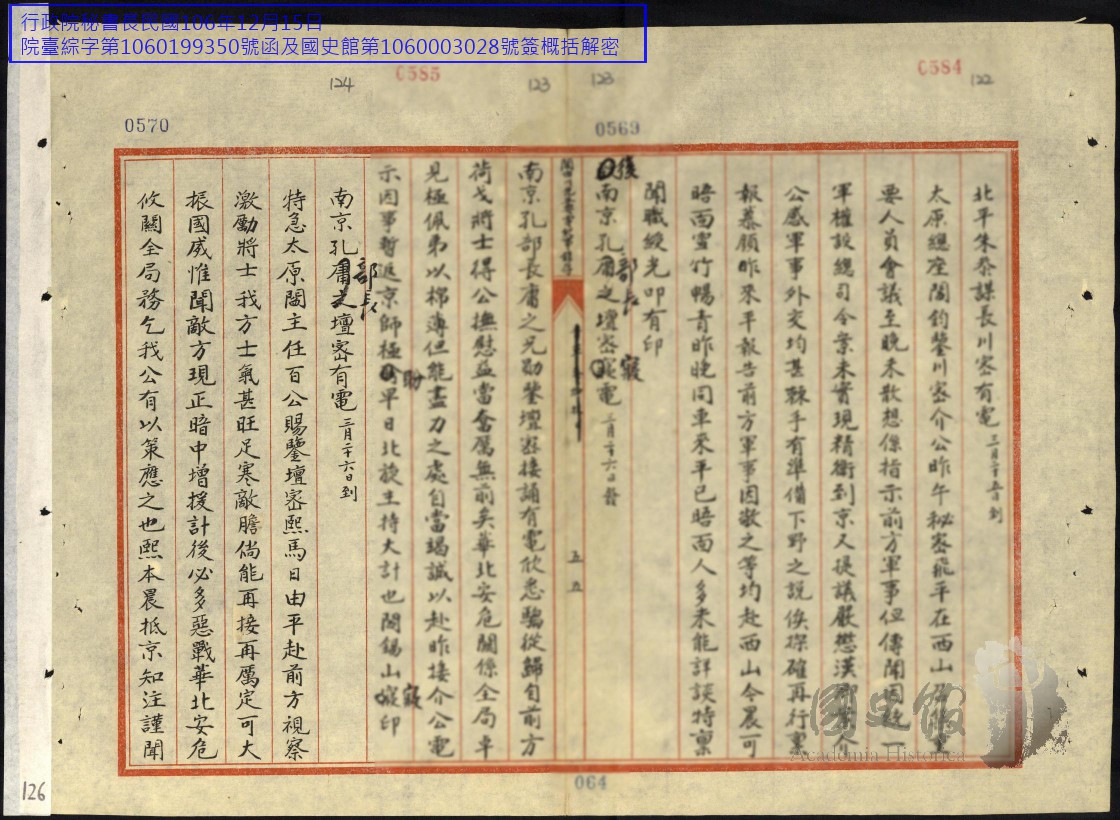 行政院秘書長民國106年12月15日
院臺綜字第1060199350號函及國史館第1060003028號簽概括解密
0585
0584
124
123
123
122
0570
0569
北平朱參謀長川密有電
太原總座閻鈞鑒川密介公昨午秘密飛平在西山
要人員會議至晚未散想係指示前方軍事但傳聞因
軍權設總司令業未實現精衛到京又提議嚴懲漢
公感軍事外交均甚棘手有準備下野之說俟探確再行稟
報慕顏昨來平報告前方軍事因敬之等均赴西山今晨可
晤面雲竹暢青昨晚同車來平已晤面人多未能詳談特稟
聞職綬光叩有印
復南京孔部長庸之壇密寢電
五五
南京孔部長庸之兄勛鑒壇密接誦有電欣悉驂從歸自前方
荷戈將士得公撫慰益當奮厲無前矣華北安危關係全局卓
見極佩弟以棉薄但能盡力之處自當竭誠以赴昨接介公電
示因事暫返京師極盼早日北旋主持大計也閻錫山寢印
南京孔部長庸之壇密有電 三月二十六日到
特急太原閻主任百公賜鑒壇密熙馬日由平赴前方視察
激勵將士我方士氣甚旺足寒敵膽倘能再接再厲定可大
振國威惟聞敵方現正暗中增援計後必多惡戰華北安危
攸關全局務乞我公有以策應之也熙本晨抵京知注謹聞
064
126
國史館
Academia Historica